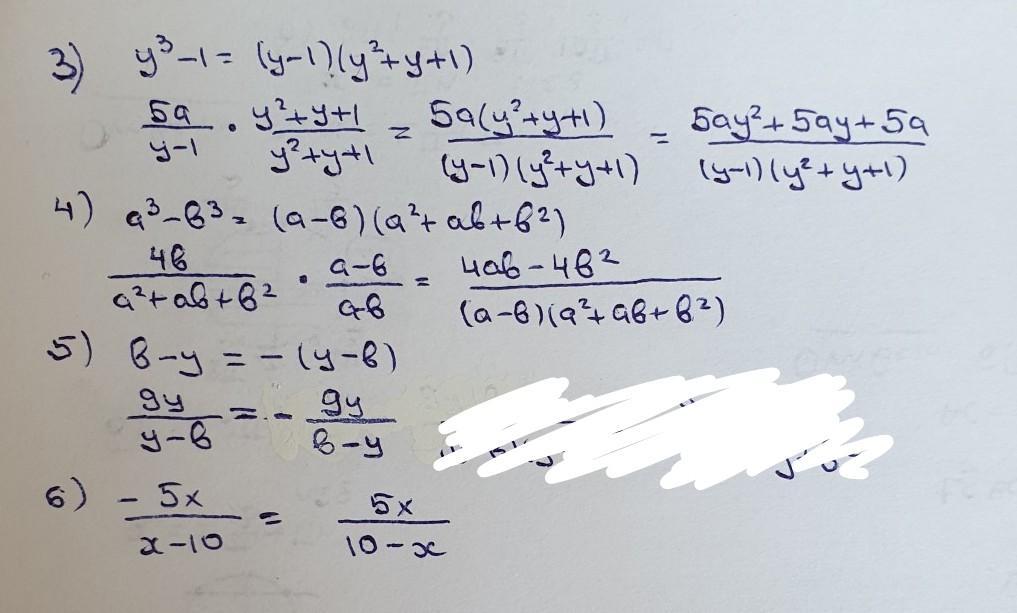 3) y³-1 = (y-1)(y²+y+1)
5a/(y-1) · (y²+y+1)/(y²+y+1) = 5a(y²+y+1)/((y-1)(y²+y+1)) = (5ay²+5ay+5a)/((y-1)(y²+y+1))
4) a³-в³ = (a-в)(a²+aв+в²)
4в/(a²+aв+в²) · (a-в)/(a-в) = (4aв-4в²)/((a-в)(a²+aв+в²))
5) в-y = -(y-в)
9y/(y-в) = - 9y/(в-y)
6) -5x/(x-10) = 5x/(10-x)